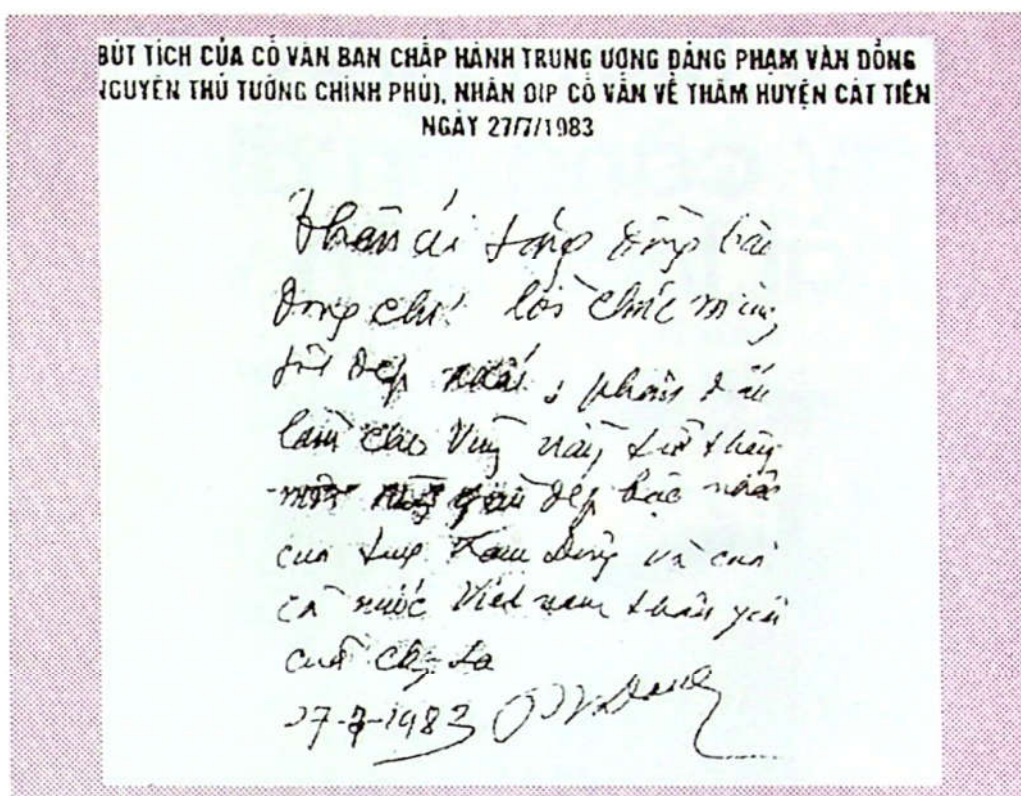 BÚT TÍCH CỦA CỐ VẤN BAN CHẤP HÀNH TRUNG ƯƠNG ĐẢNG PHẠM VĂN ĐỒNG
NGUYÊN THỦ TƯỚNG CHÍNH PHỦ), NHÂN DỊP CỐ VẤN VỀ THĂM HUYỆN CÁT TIÊN
NGÀY 27/7/1983
Thân ái tặng đồng bào
đồng chí lời chúc mừng
tốt đẹp nhất, phấn đấu
làm cho vùng này trở thành
một vùng giàu đẹp bậc nhất
của tỉnh Lâm Đồng và của
cả nước Việt nam thân yêu
của chúng ta
27-7-1983 PVDong